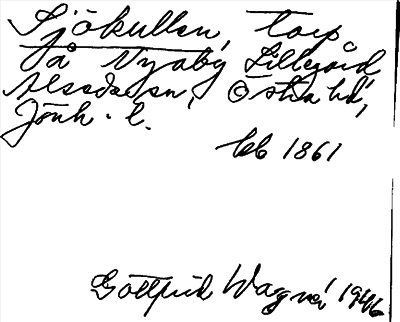 Sjökullen, torp
på Nyaby Lillegård,
Alseda sn, Östra hd,
Jönk. l.
bb 1861
Gottfrid Wagnér 1946